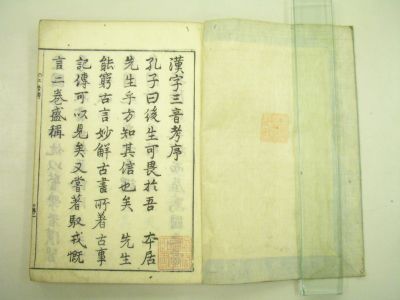 漢字三音考序
孔子曰後生可畏於吾　本居
先生乎方知其信也矣　先生
能窮古言妙解古書所著古事
記傳可以見矣又嘗著馭戎慨
言二卷盛稱